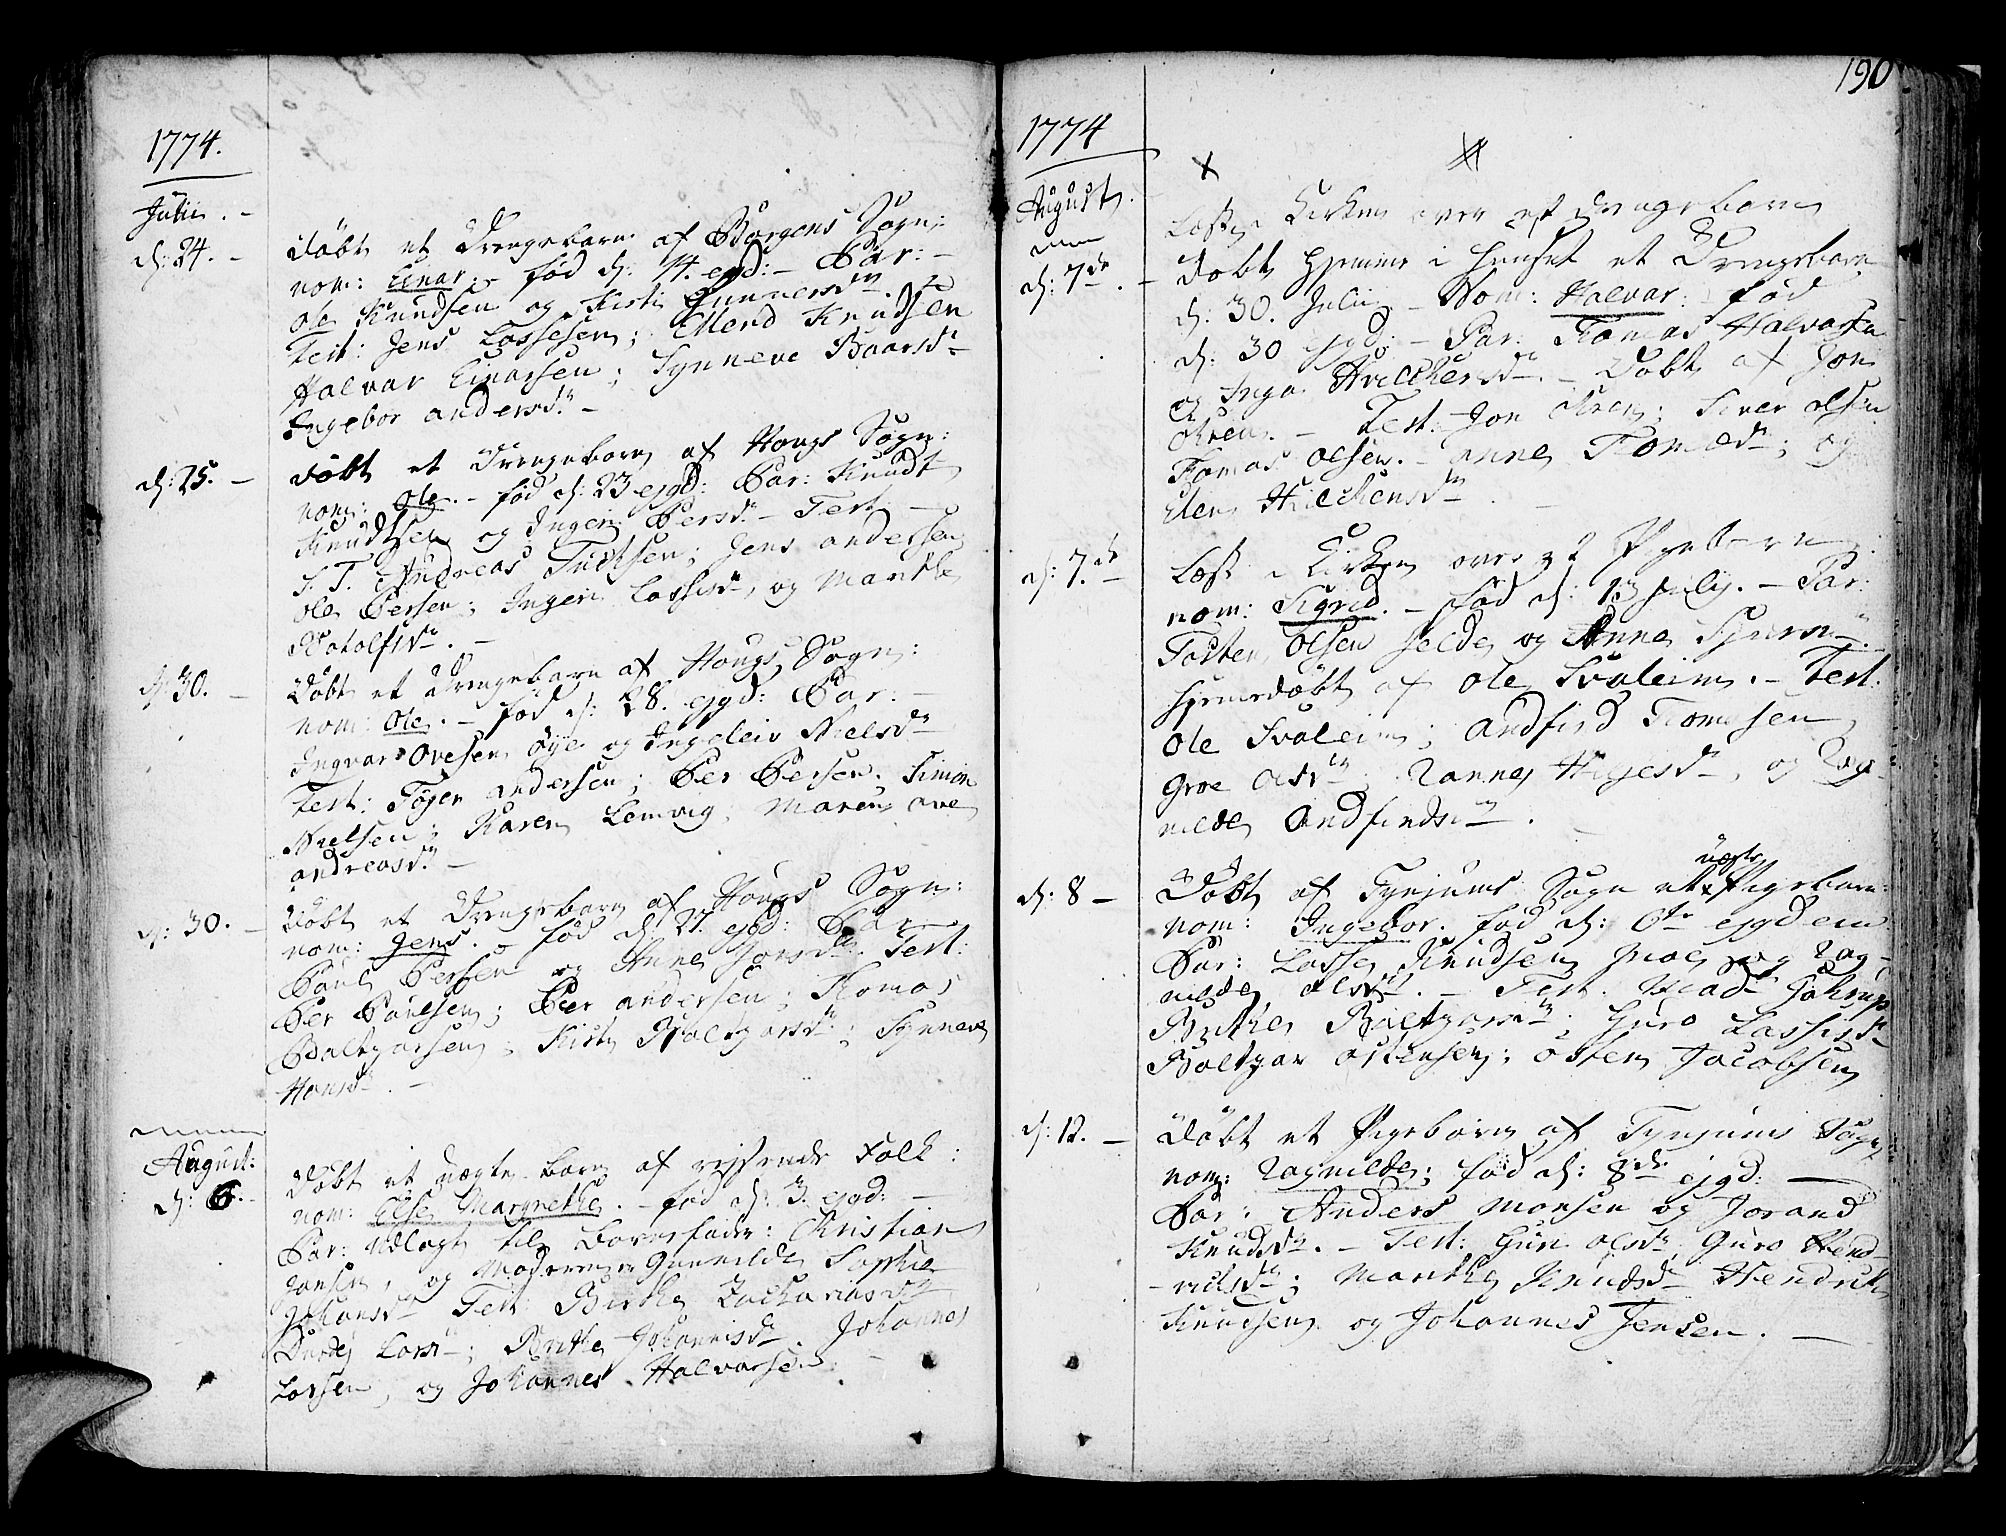 1774.
Julii. -
d: 24. -
Døbt et Drengebarn af Borgens Sogn:
nom: Einar. - fød d: 14. ejgd: - Par: -
Ole Knudsen og Kisti Gunnersdr.
Test: Jens Lassesen; Ellend Knudsen
Halvar Einarsen; Synneve Baarsdr
Ingebor Andersdr. -
d: 25. -
Døbt et Drengebarn af Hougs Sogn:
nom: Ole. - fød d: 23 ejgd: Par: Knudt
Knudtsen og Ingeri Persdr - Test: -
S. T. Andreas Tuchsen; Jens Andersen
Ole Persen; Ingeri Lassisdr, og Marthe
Botolfsdr. -
d: 30. -
Døbt et Drengebarn af Hougs Sogn:
nom: Ole. - fød d: 28. ejgd: Par: -
Ingvar Ovesen Øye og Ingeleiv Nielsdr
Test: Tøger Andersen; Per Persen. Simon
Nielsen; Karen Lemvig, Maren
Andreasdr. -
d: 30. -
Døbt et Drengebarn af Hougs Sogn:
nom: Jens. - fød d: 27. ejgd: Par:
Paul Persen og Anne Jonsdr. Test:
Per Paulsen; Per Andersen; Tomas
Baltzarsen; Kisti Baltzarsdr; Synneve
Hansdr. -
August:
d: 6. -
Døbt et uægte Barn af rejsende Folk:
nom: Else Margrethe. - fød d: 3. ejgd: -
Par: Udlagt til Barnefader: Christian
Jansen, og Moderen Gunnilde Sophie
Johansdr Test: Birthe Zachariasdr
Durdej Larsdr; Brithe Johannisdr. Johannes
Larsen, og Johannes Halvorsen.
190
1774
August.
d: 7de. -
Læst i Kirken over et Drengebarn
døbt hjemme i Huuset et Drengebarn
d: 30. Julii - Nom: Halvar: fød
d: 30 ejgd: - Par: Tomas Halvarsen
og Inga Hvelchensdr. - Døbt af Jon
- Test: Jon ; Siver Olsen
Tomas Olsen. - Anne Tomædr; og
Elen Hvelchensdr.
d: 7de -
Læst i Kirken over et Pigebarn
nom: Sigrid. - fød d: 13 Julij. - Par:
Tosten Olsen Jelde og Anne Sjursdr.
hjemedøbt af Ole Svaleim. - Test:
Ole Svaleim; Andfind Tomesen
Groe Olsdr; Ranne Helgesdr, og Rag-
nilde Andfindsdr.
d: 8 -
Døbt af Tynjums Sogn et uægte Pigebarn:
nom: Ingebor. fød d: 6te ejgdem
Par: Lasse Knudsen Moe og Rag-
nilde Olsdr. - Test.
Brithe Baltzarsdr; Guro Lassisdr
Baltzar Ostensen; Østen Jacobsen
d: 12. -
Døbt et Pigebarn af Tynjums Sogn
nom: Ragnilde; fød d: 8de ejgd: -
Par: Anders Monsen og Jorand
Knudsdr. - Test: Guri Olsdr, Guro Hend-
richsdr; Marthe Knudsdr Hendrik
Knudsen og Johannes Jensen. -